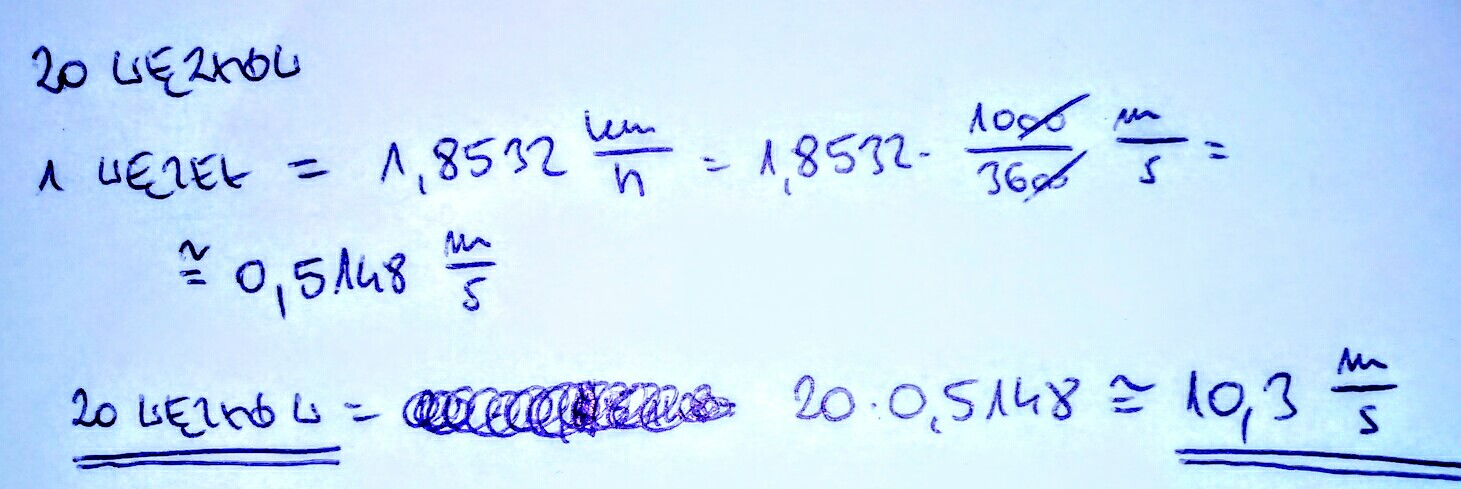 20 WĘZŁÓW
1 WĘZEŁ = 1,8532 km/h = 1,8532 · 1000/3600 m/s =
≅ 0,5148 m/s
20 WĘZŁÓW = 20 · 0,5148 ≅ 10,3 m/s